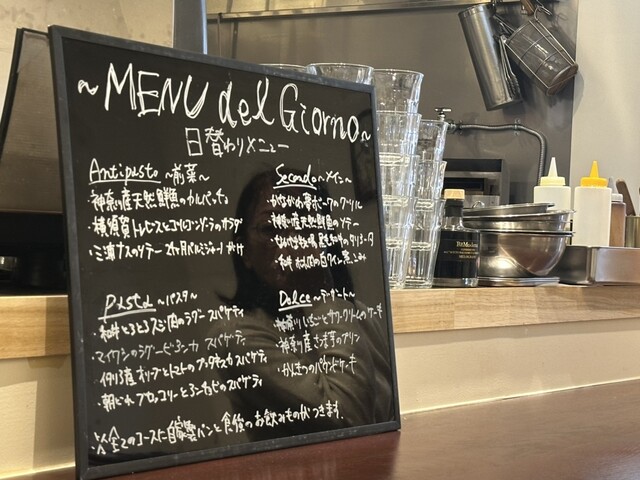 ~MENU del Giorno~
日替わりメニュー
Antipasto ~前菜~
・神奈川産天然鮮魚のカルパッチョ
・横須賀トレビスとゴルゴンゾーラのサラダ
・三浦ナスのソテー
Secondo ~メイン~
・かながわ夢ポークのグリル
・神奈川産天然鮮魚のソテー
Pasta ~パスタ~
・和牛とろとろスジ肉のラグー スパゲティ
・マイワシのラグー スパゲティ
オリーブとトマトのプッタネスカ スパゲティ
・朝どれブロッコリーとアンチョビのスパゲティ
Dolce ~デザート~
いちごとサワークリームのケーキ
・神奈川産さつま芋のプリン
・かんきつのパウンドケーキ
※全てのコースに自家製パンと食後のお飲みものがつきます。